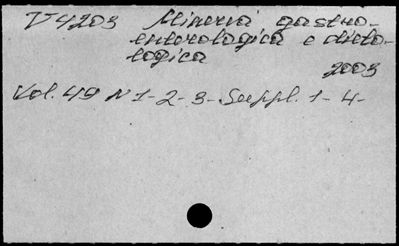 V4203 Minerva gastro-
enterologica e dieto-
logica
2003
Vol. 49 N 1-2-3-Suppl. 1-4-